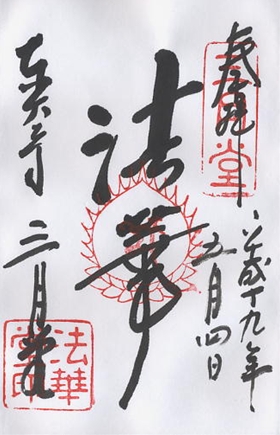 奉拝
三月堂
平成十九年
五月四日
法華
東大寺
三月堂
法華
堂印